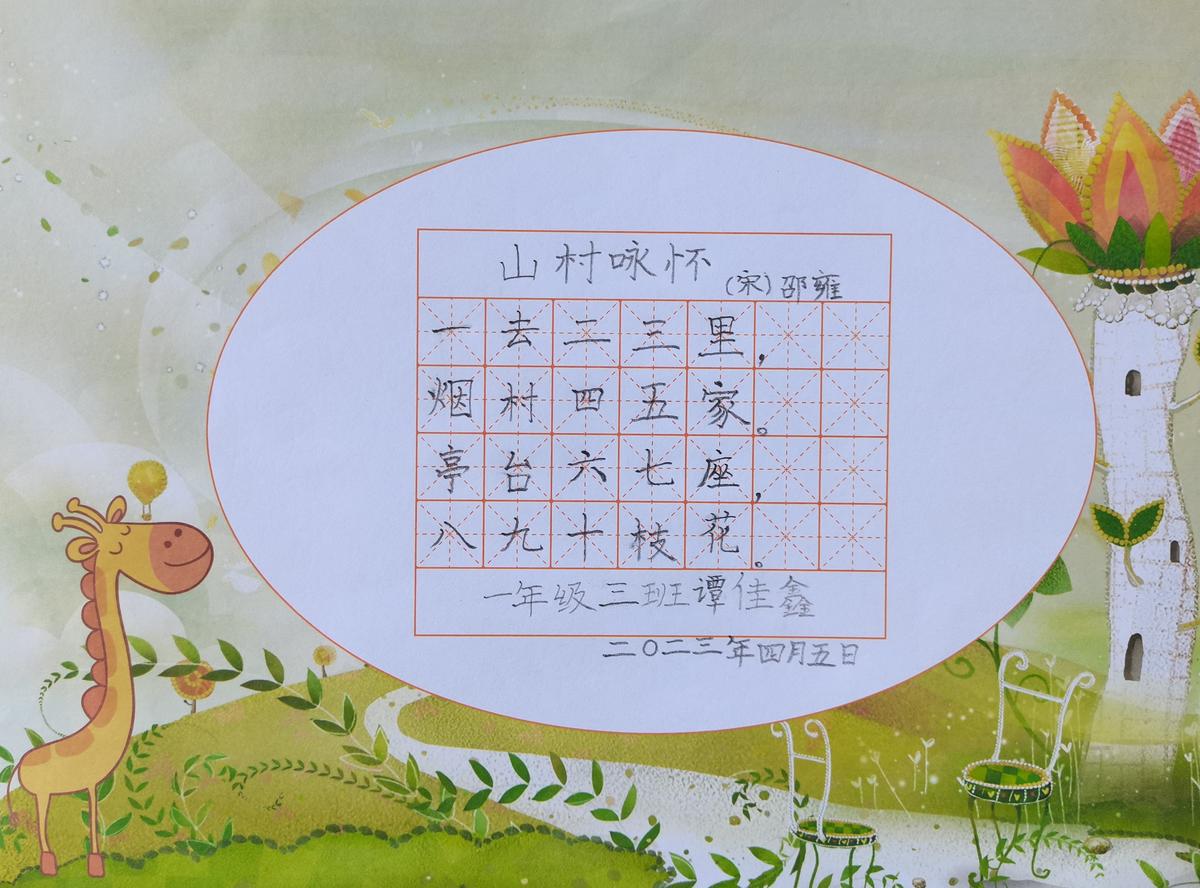 山村咏怀
(宋)邵雍
一去二三里，
烟村四五家。
亭台六七座，
八九十枝花。
一年级三班谭佳鑫
二〇二三年四月五日